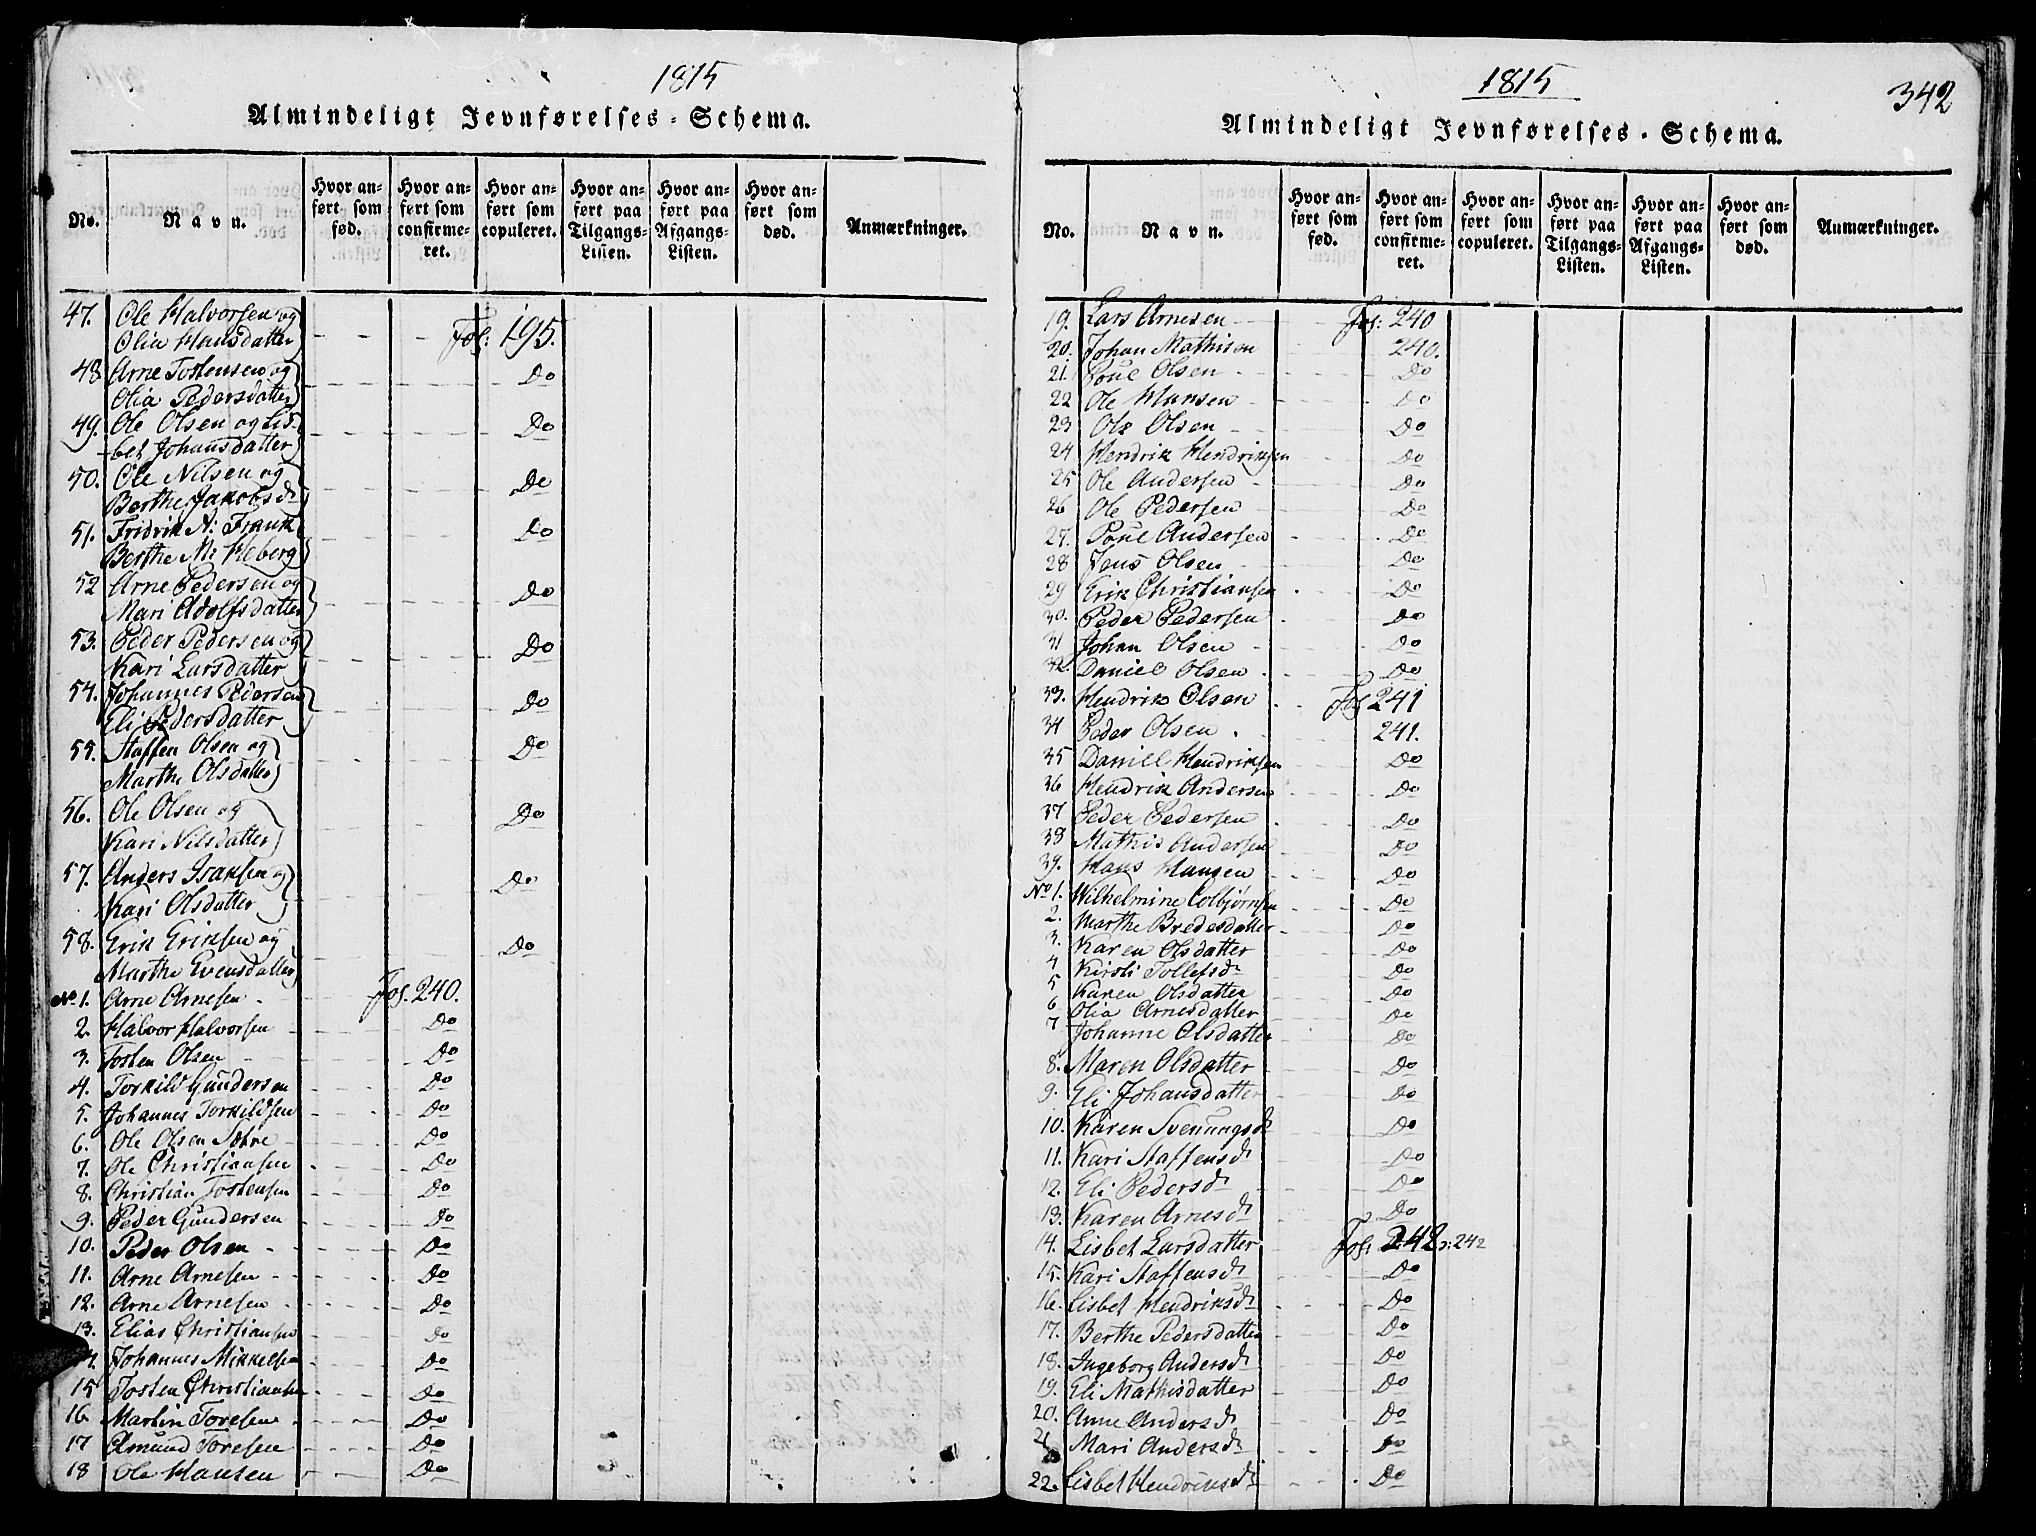 1815
Almindeligt Jevnførelses-Schema.
No.
Navn.
Hvor anført som fød.
Hvor anført som confirmeret.
Hvor anført som copuleret.
Hvor anført paa Tilgangs-Listen.
Hvor anført paa Afgangs-Listen.
Hvor anført som død.
Anmærkninger.
47. Ole Halvorsen og
Olia Hansdatter Fol: 195.
48 Arne Tostensen og
Olia Pedersdatter Do
49. Ole Olsen og Lis-
bet Johansdatter Do
50. Ole Nilsen og
Berthe Jakobsdr Do
51. Fridrik N: Frank
Berthe M: Heberg Do
52 Arne Pedersen og
Mari Adolfsdatter Do
53. Peder Pedersen og
Kari Larsdatter Do
54. Johannes Pedersen
Eli Pedersdatter Do
55. Staffen Olsen og
Marthe Olsdatter Do
56. Ole Olsen og
Kari Nilsdatter Do
57. Anders Isaksen og
Kari Olsdatter Do
58. Erik Eriksen og
Marthe Evensdatter Do
No 1. Arne Arnesen Fol. 240.
2. Halvor Halvorsen Do
3. Tosten Olsen Do
4. Torkild Gundersen Do
5. Johannes Torkildsen Do
6. Ole Olsen Sætre Do
7. Ole Christiansen Do
8. Christian Tostensen Do
9. Peder Gundersen Do
10. Peder Olsen Do
11. Arne Arnesen Do
12. Arne Arnesen Do
13. Elias Christiansen Do
Johannes Mikkelsen Do
15 Tosten Christiansen Do
16 Martin Toresen Do
17 Amund Toresen Do
18 Ole Hansen Do
1815
342
Almindeligt Jevnførelses-Schema.
No.
Navn.
Hvor anført som fød.
Hvor anført som confirmeret.
Hvor anført som copuleret.
Hvor anført paa Tilgangs-Listen.
Hvor anført paa Afgangs-Listen.
Hvor anført som død.
Anmærkninger.
19. Lars Arnesen Fol: 240
20. Johan Mathisen 240.
21. Poul Olsen Do
22 Ole Hansen Do
23 Ole Olsen Do
24 Hendrik Hendriksen Do
25 Ole Andersen Do
26 Ole Pedersen Do
27. Poul Andersen Do
28 Jens Olsen Do
29 Erik Christiansen Do
30. Peder Pedersen Do
31 Johan Olsen Do
32. Daniel Olsen Do
33. Hendrik Olsen Fol 241
34 Peder Olsen 241.
35 Daniel Hendriksen Do
36 Hendrik Andersen Do
37 Peder Pedersen Do
38 Mathis Andersen Do
39. Hans Hansen Do
No 1. Wilhelmine Colbjørnsen Do
2. Marthe Bredesdatter Do
3. Karen Olsdatter Do
4 Kirsti Tollefsdr Do
5 Karen Olsdatter Do
6 Olia Arnesdatter Do
7 Johanne Olsdatter Do
8. Maren Olsdatter Do
9. Eli Johansdatter Do
10. Karen Svenungsdr Do
11. Kari Staffensdr Do
12. Eli Pedersdr Do
13. Karen Arnesdr Do
14. Lisbet Larsdatter Fol: 242 : 242
15. Kari Staffensdr Do
16. Lisbet Hendriksdr Do
17. Berthe Pedersdatter Do
18. Ingeborg Andersdr Do
19. Eli Mathisdatter Do
20. Anne Andersdr Do
21 Mari Andersdr Do
22. Lisbet Hendriksdr Do